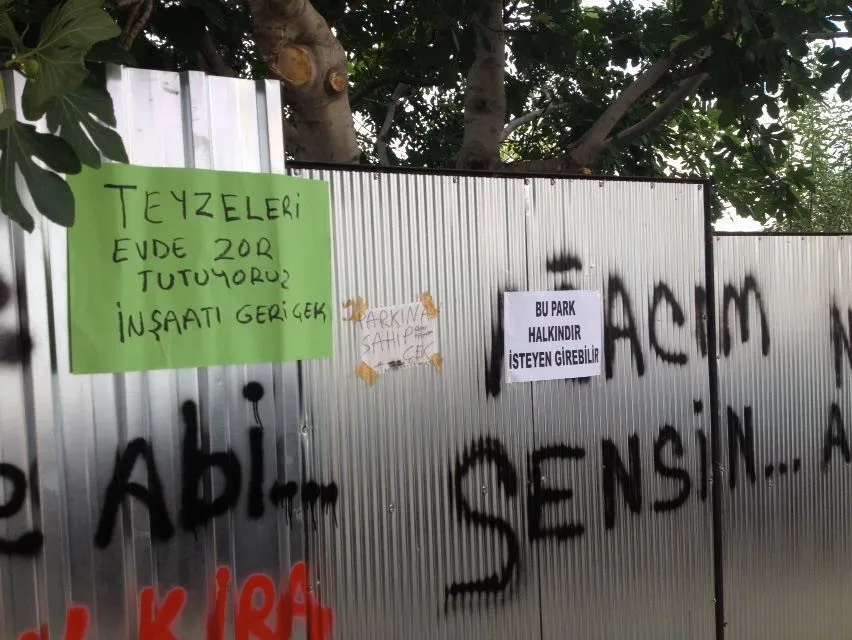 TEYZELERİ
EVDE ZOR
TUTUYORUZ
İNŞAATI GERİ ÇEK
PARKINA
SAHİP
ÇEK
BU PARK
HALKINDIR
İSTEYEN GİREBİLİR
İLACIM
SENSİN...
Abi...
KIRA